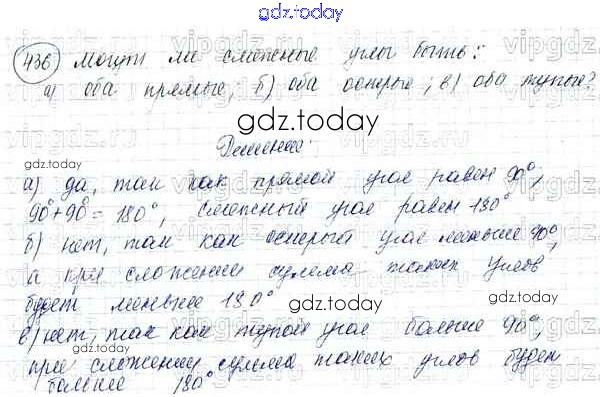 gdz.today
436) Могут ли смежные углы быть:
а) оба прямые; б) оба острые; в) оба тупые?
gdz.today
Решение:
gdz.today
а) да, так как прямой угол равен 90°;
90°+90°=180°, смежный угол равен 180°
б) нет, так как острый угол меньше 90°,
а при сложении сумма таких углов
будет меньше 180°
gdz.today
в) нет, так как тупой угол больше 90°,
gdz.today
при сложении сумма таких углов будет
больше 180°
gdz.today